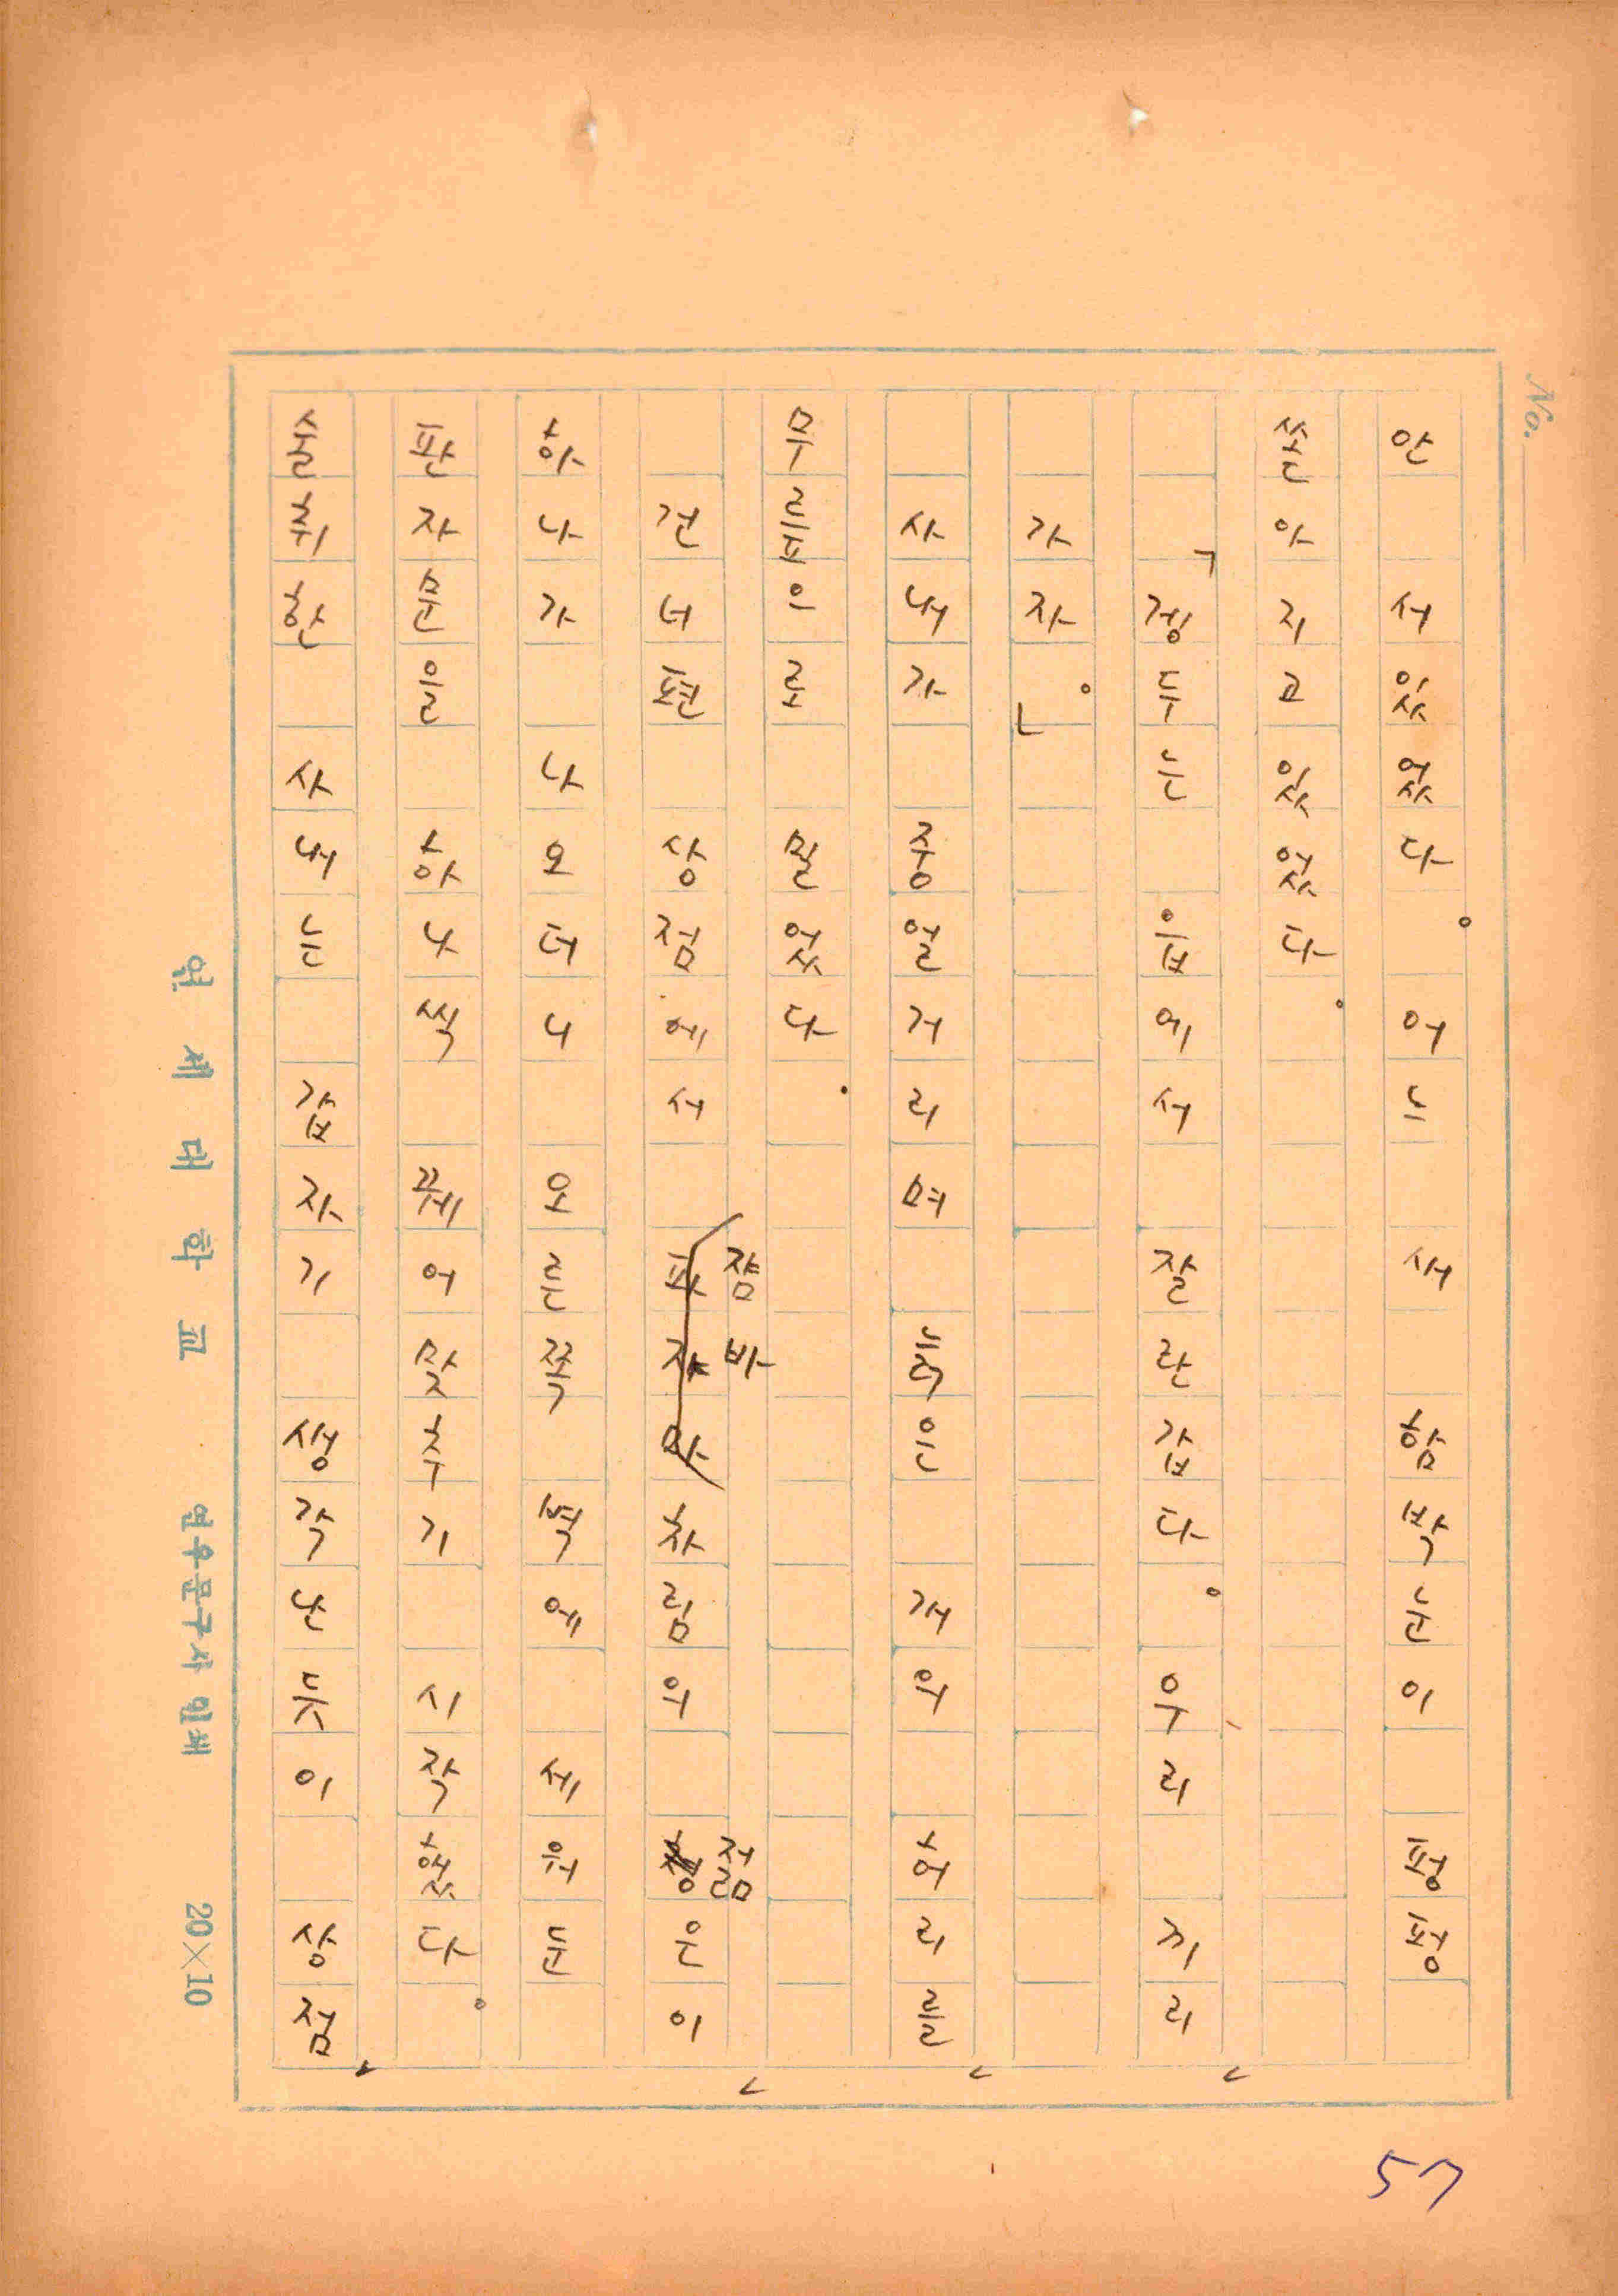 No.
안 서있었다。 어느새 함박눈이 펑펑
쏟아지고있었다。
「경두는 읍에서 잘란갑다。우리끼리
가자。」
사내가 중얼거리며 늙은 개의 허리를
무릎으로 밀었다.
건너편 상점에서 잠바차림의 젊은이
하나가 나오더니 오른쪽 벽에 세워둔
판자문을 하나씩 꿰어맞추기 시작했다。
술취한 사내는 갑자기 생각난듯이 상점
연세대학교 연우문구사 인쇄 20×10
57